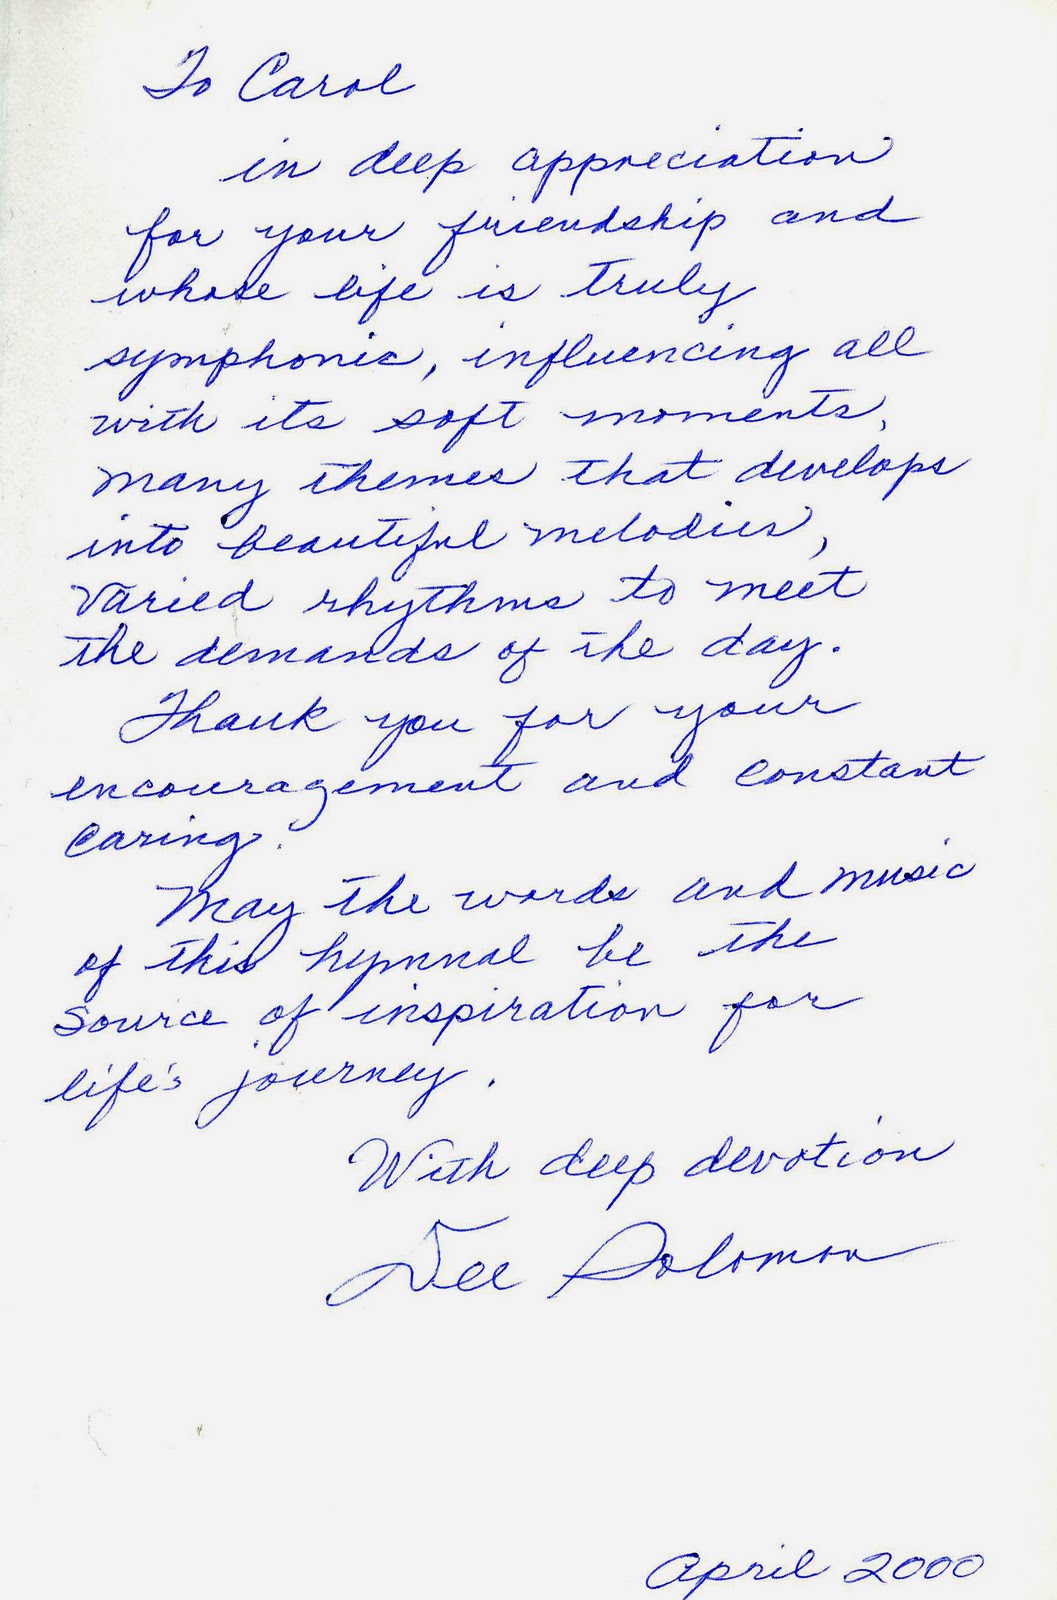 To Carol
in deep appreciation
for your friendship and
whose life is truly
symphonic, influencing all
with its soft moments,
many themes that develops
into beautiful melodies,
varied rhythms to meet
the demands of the day.
Thank you for your
encouragement and constant
caring.
May the words and music
of this hymnal be the
source of inspiration for
life's journey.
With deep devotion
Dee Solomon
April 2000